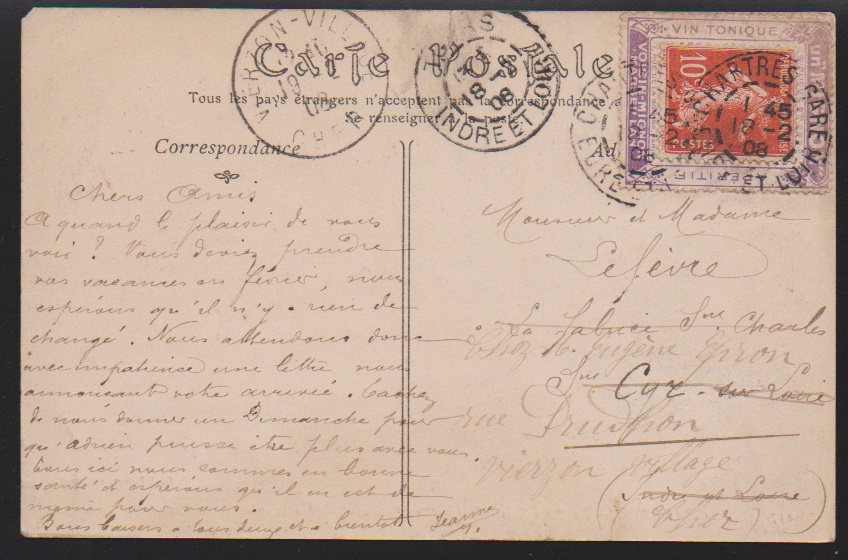 Carte Postale
Tous les pays étrangers n'acceptent pas la correspondance a
Se renseigner à la poste
Correspondance
Ad
VIERZON-VILLAGE
CHER
INDRE ET LOIRE
18
08
CHARTRES GARE
1 45
18 - 2
08
EURE ET LOIR
VIN TONIQUE
10
POSTES
Chers Amis
A quand le plaisir de vous
voir ? Vous deviez prendre
vos vacances en février, nous
espérons qu'il n'y a rien de
changé. Nous attendons donc
avec impatience une lettre nous
annoncant votre arrivée. Tachez
de nous donner un Dimanche pour
qu'adrien puisse être plus avec vous.
tous ici nous sommes en bonne
santé et espérons qu'il en est de
meme pour vous.
Bons baisers à tous deux et à bientot
Jeanne
Monsieur et Madame
Lefèvre
La Ste Charles
Chez Eugène
St Cyr sur Loire
rue Prudhon
Vierzon village
Indre et Loire
(Cher)